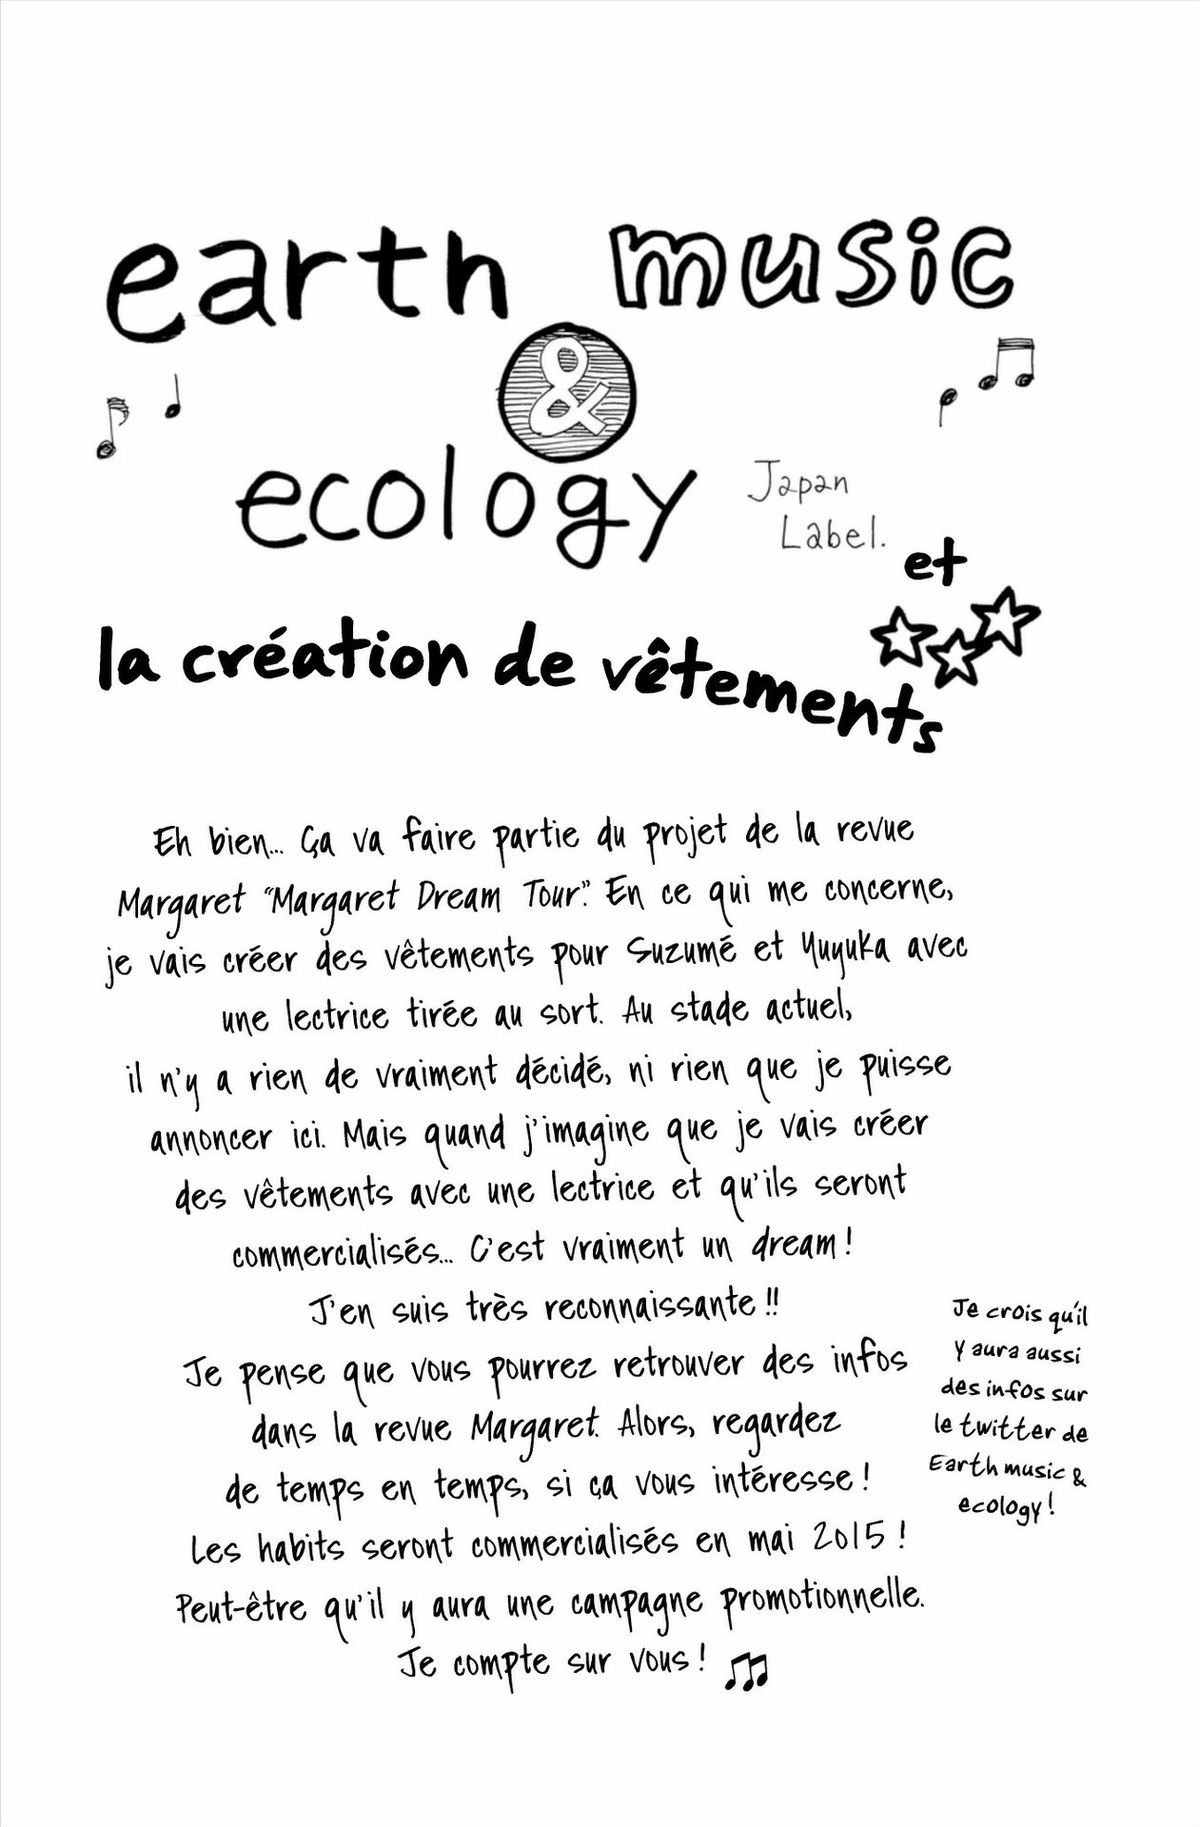 earth music
&
ecology Japan
Label.
et
la création de vêtements
Eh bien... Ça va faire partie du projet de la revue
Margaret "Margaret Dream Tour". En ce qui me concerne,
je vais créer des vêtements pour Suzumé et Yuyuka avec
une lectrice tirée au sort. Au stade actuel,
il n'y a rien de vraiment décidé, ni rien que je puisse
annoncer ici. Mais quand j'imagine que je vais créer
des vêtements avec une lectrice et qu'ils seront
commercialisés... C'est vraiment un dream !
J'en suis très reconnaissante !!
Je pense que vous pourrez retrouver des infos
dans la revue Margaret. Alors, regardez
de temps en temps, si ça vous intéresse !
Les habits seront commercialisés en mai 2015 !
Peut-être qu'il y aura une campagne promotionnelle.
Je compte sur vous !
Je crois qu'il
y aura aussi
des infos sur
le twitter de
Earth music &
ecology !